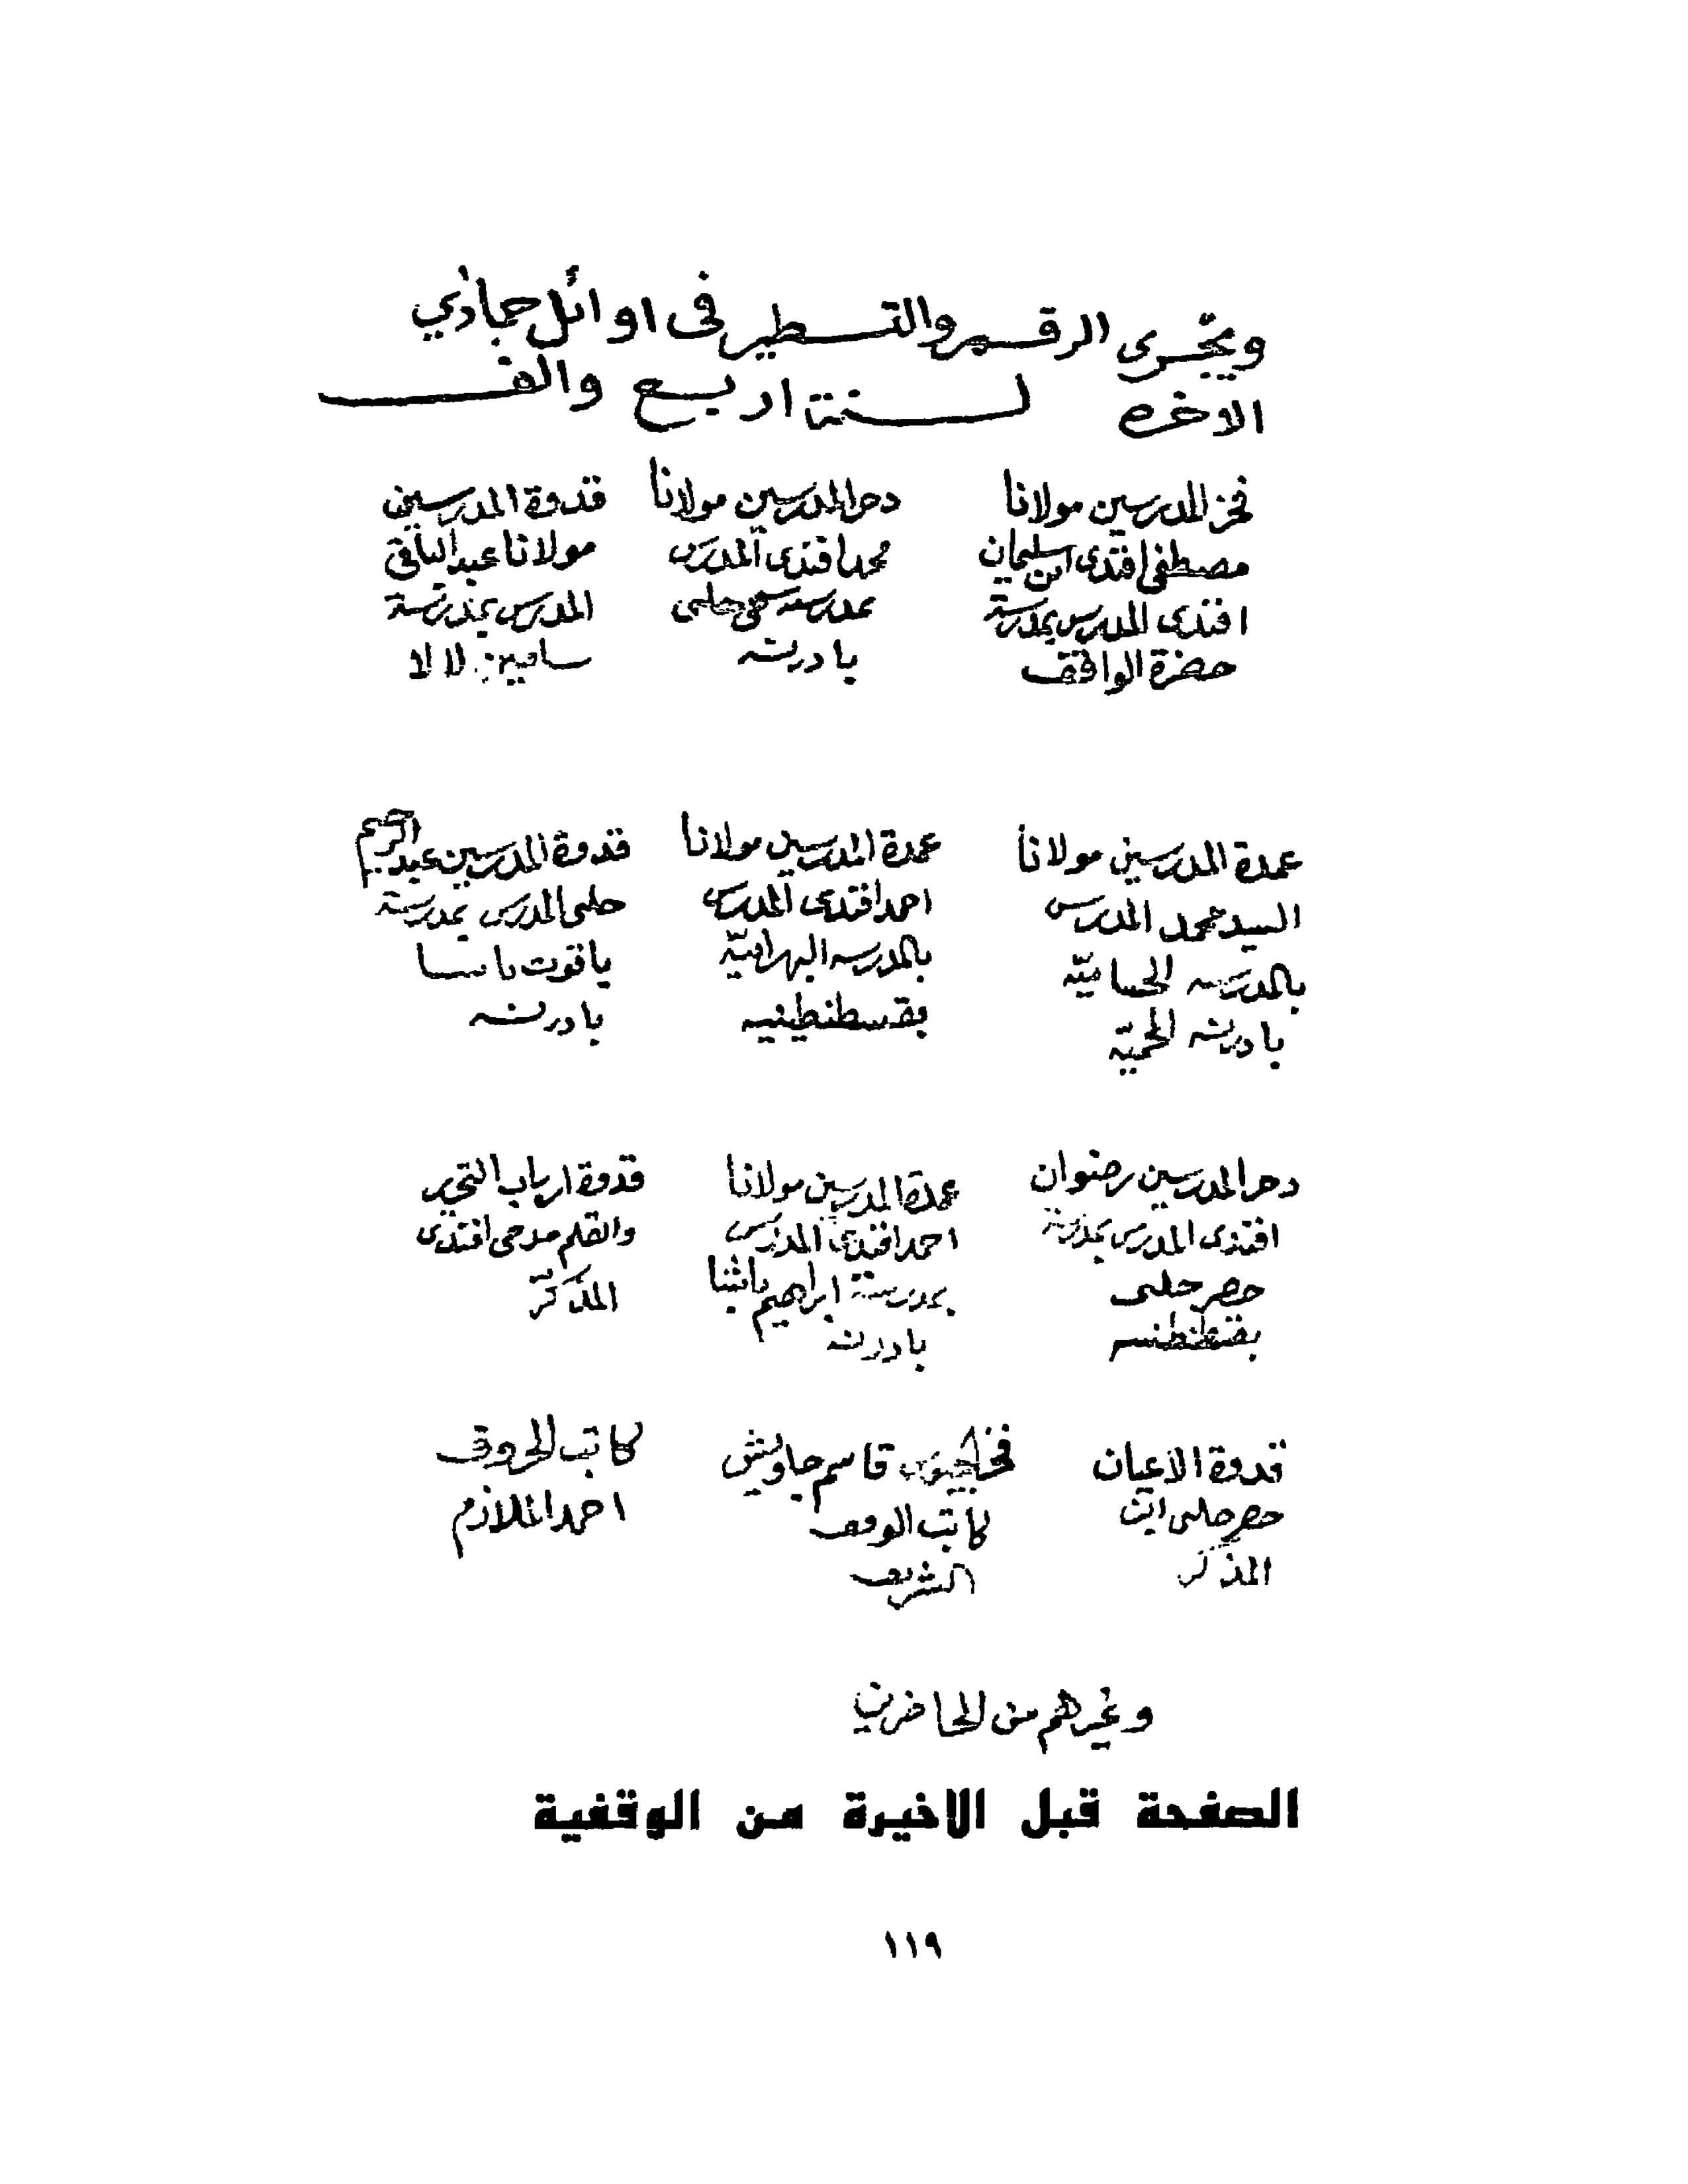 ويجرى الرقم والتسطير فى اوائل جمادي
الاخره لسنة اربع والف
فخر المدرسين مولانا
مصطفى افندى ابن سليمان
افندى المدرس بمدرسة
حضرة الواقف
المدرسين مولانا
محمد افندى المدرس
بمدرسة چلبى
بادرنه
قدوة المدرسين
مولانا عبد الباقى
المدرس بمدرسة
لالا
عمدة المدرسين مولانا
السيد محمد المدرس
بالمدرسه الحساميّه
بادرنه المحميّه
عمدة المدرسين مولانا
احمد افندى المدرس
بالمدرسه البهراميّه
بقسطنطينيه
قدوة المدرسين عبد الكريم
حلبى المدرس بمدرسة
ياقوت پاشا
بادرنه
المدرسين رضوان
افندى المدرس بمدرسة
حلبى
بقسطنطنيه
عمدة المدرسين مولانا
احمد افندى المدرس
بمدرسة ابراهيم پاشا
بادرنه
قدوة ارباب التحرير
والقلم مدحى افندى
المذكر
قدوة الاعيان
حلبى ابن
المذكر
فخر قاسم چاويش
كاتب الوقف
الشريف
كاتب الحروف
احمد الملازم
وغيرهم من الحاضرين
الصفحة قبل الاخيرة من الوقفية
١١٩